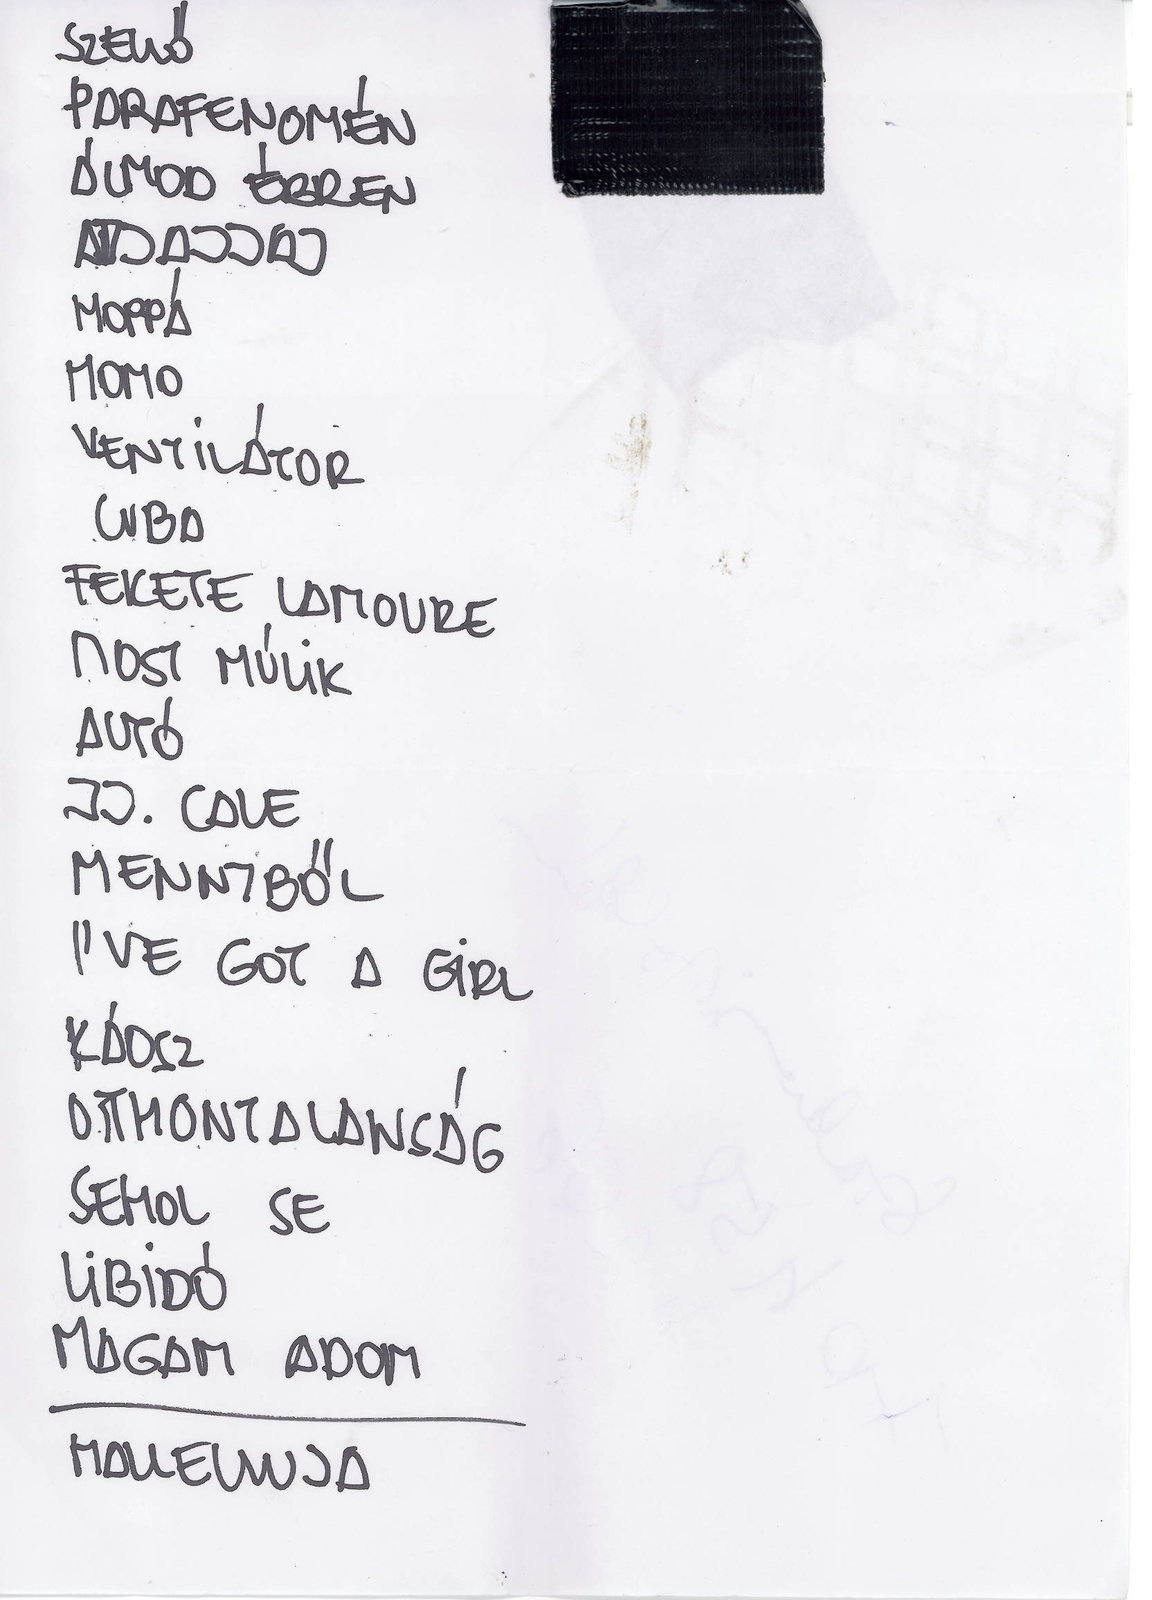 SZELLŐ
PARAFENOMÉN
ÁLMOD ÉBREN
AJJAJJAJ
HOPPÁ
HOMO
VENTILÁTOR
CUBA
FEKETE LAMOURE
MOST MÚLIK
AUTÓ
JJ. CALE
MENNYBŐL
I'VE GOT A GIRL
KÁOSZ
OTTHONTALANSÁG
SEHOL SE
LIBIDÓ
MAGAM ADOM
HALLELUJA